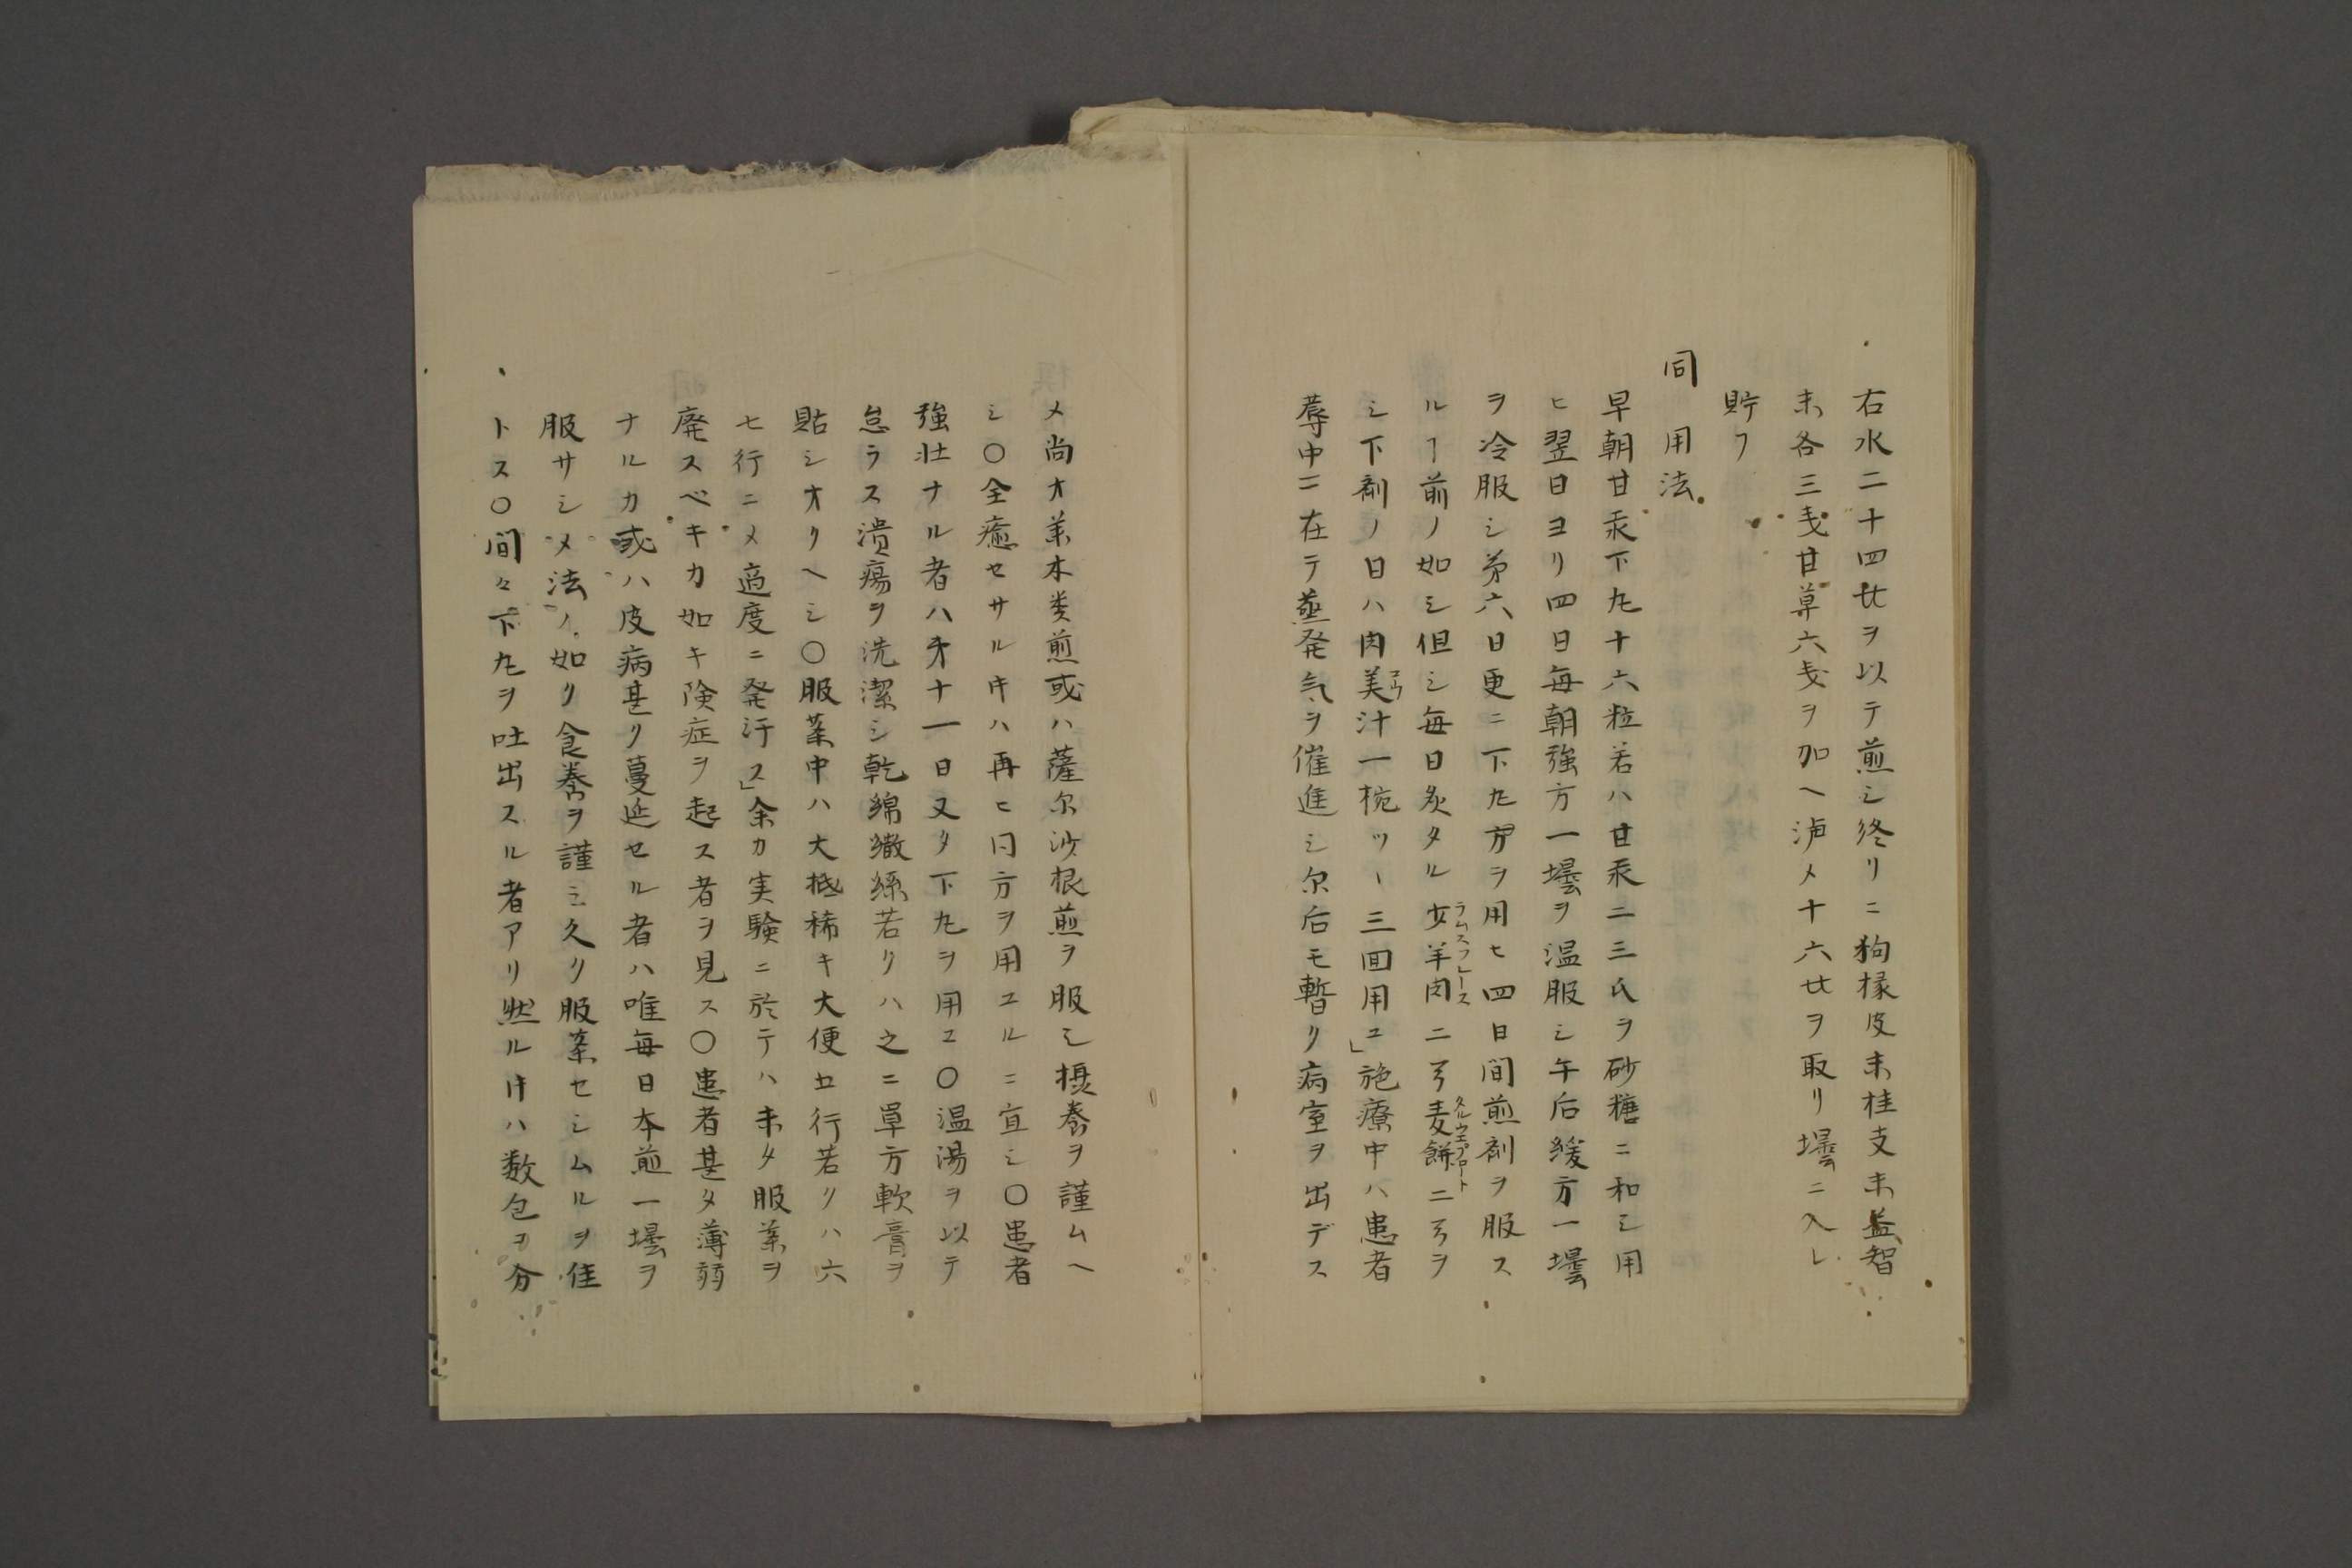 右水二十四𠦃ヲ以テ煎シ終リニ狗櫞皮末桂支末益智
末各三戔甘草六戔ヲ加ヘ滤メ十六𠦃ヲ取リ壜ニ入レ
貯フ
同 用法
早朝甘汞下丸十六粒若ハ甘汞二三氏ヲ砂糖ニ和シ用
ヒ翌日ヨリ四日毎朝強方一壜ヲ温服シ午后緩方一壜
ヲ冷服シ第六日更ニ下丸方ヲ用ヒ四日間煎剤ヲ服ス
ルヿ前ノ如シ但シ毎日炙タル少羊肉ラムスフレース二ヲ麦餅タルウエブロート二ヲ
シ下剤ノ日ハ肉羹汁一椀ツヽ三回用ユ」施療中ハ患者
蓐中ニ在テ蒸発気ヲ催進シ尓后モ暫ク病室ヲ出デス
メ尚オ薬木煎或ハ薩尓沙根煎ヲ服シ摂養ヲ謹ムヘ
シ〇全癒セサル𪜈ハ再ヒ同方ヲ用ユルニ宜シ〇患者
強壮ナル者ハ才十一日又タ下丸ヲ用ユ〇温湯ヲ以テ
怠ラス潰瘍ヲ洗潔シ乾綿繳絲若クハ之ニ単方軟膏ヲ
貼シオクヘシ〇服薬中ハ大抵稀キ大便五行若クハ六
七行ニメ適度ニ発汗ス」余カ実験ニ於テハ未タ服薬ヲ
廃スベキカ如キ険症ヲ起ス者ヲ見ス〇患者甚タ薄弱
ナルカ或ハ皮病甚ク蔓延セル者ハ唯毎日本煎一壜ヲ
服サシメ法ノ如ク食養ヲ謹ミ久ク服薬セシムルヲ佳
トス〇間々下丸ヲ吐出スル者アリ然ル𪜈ハ数包ヲ分